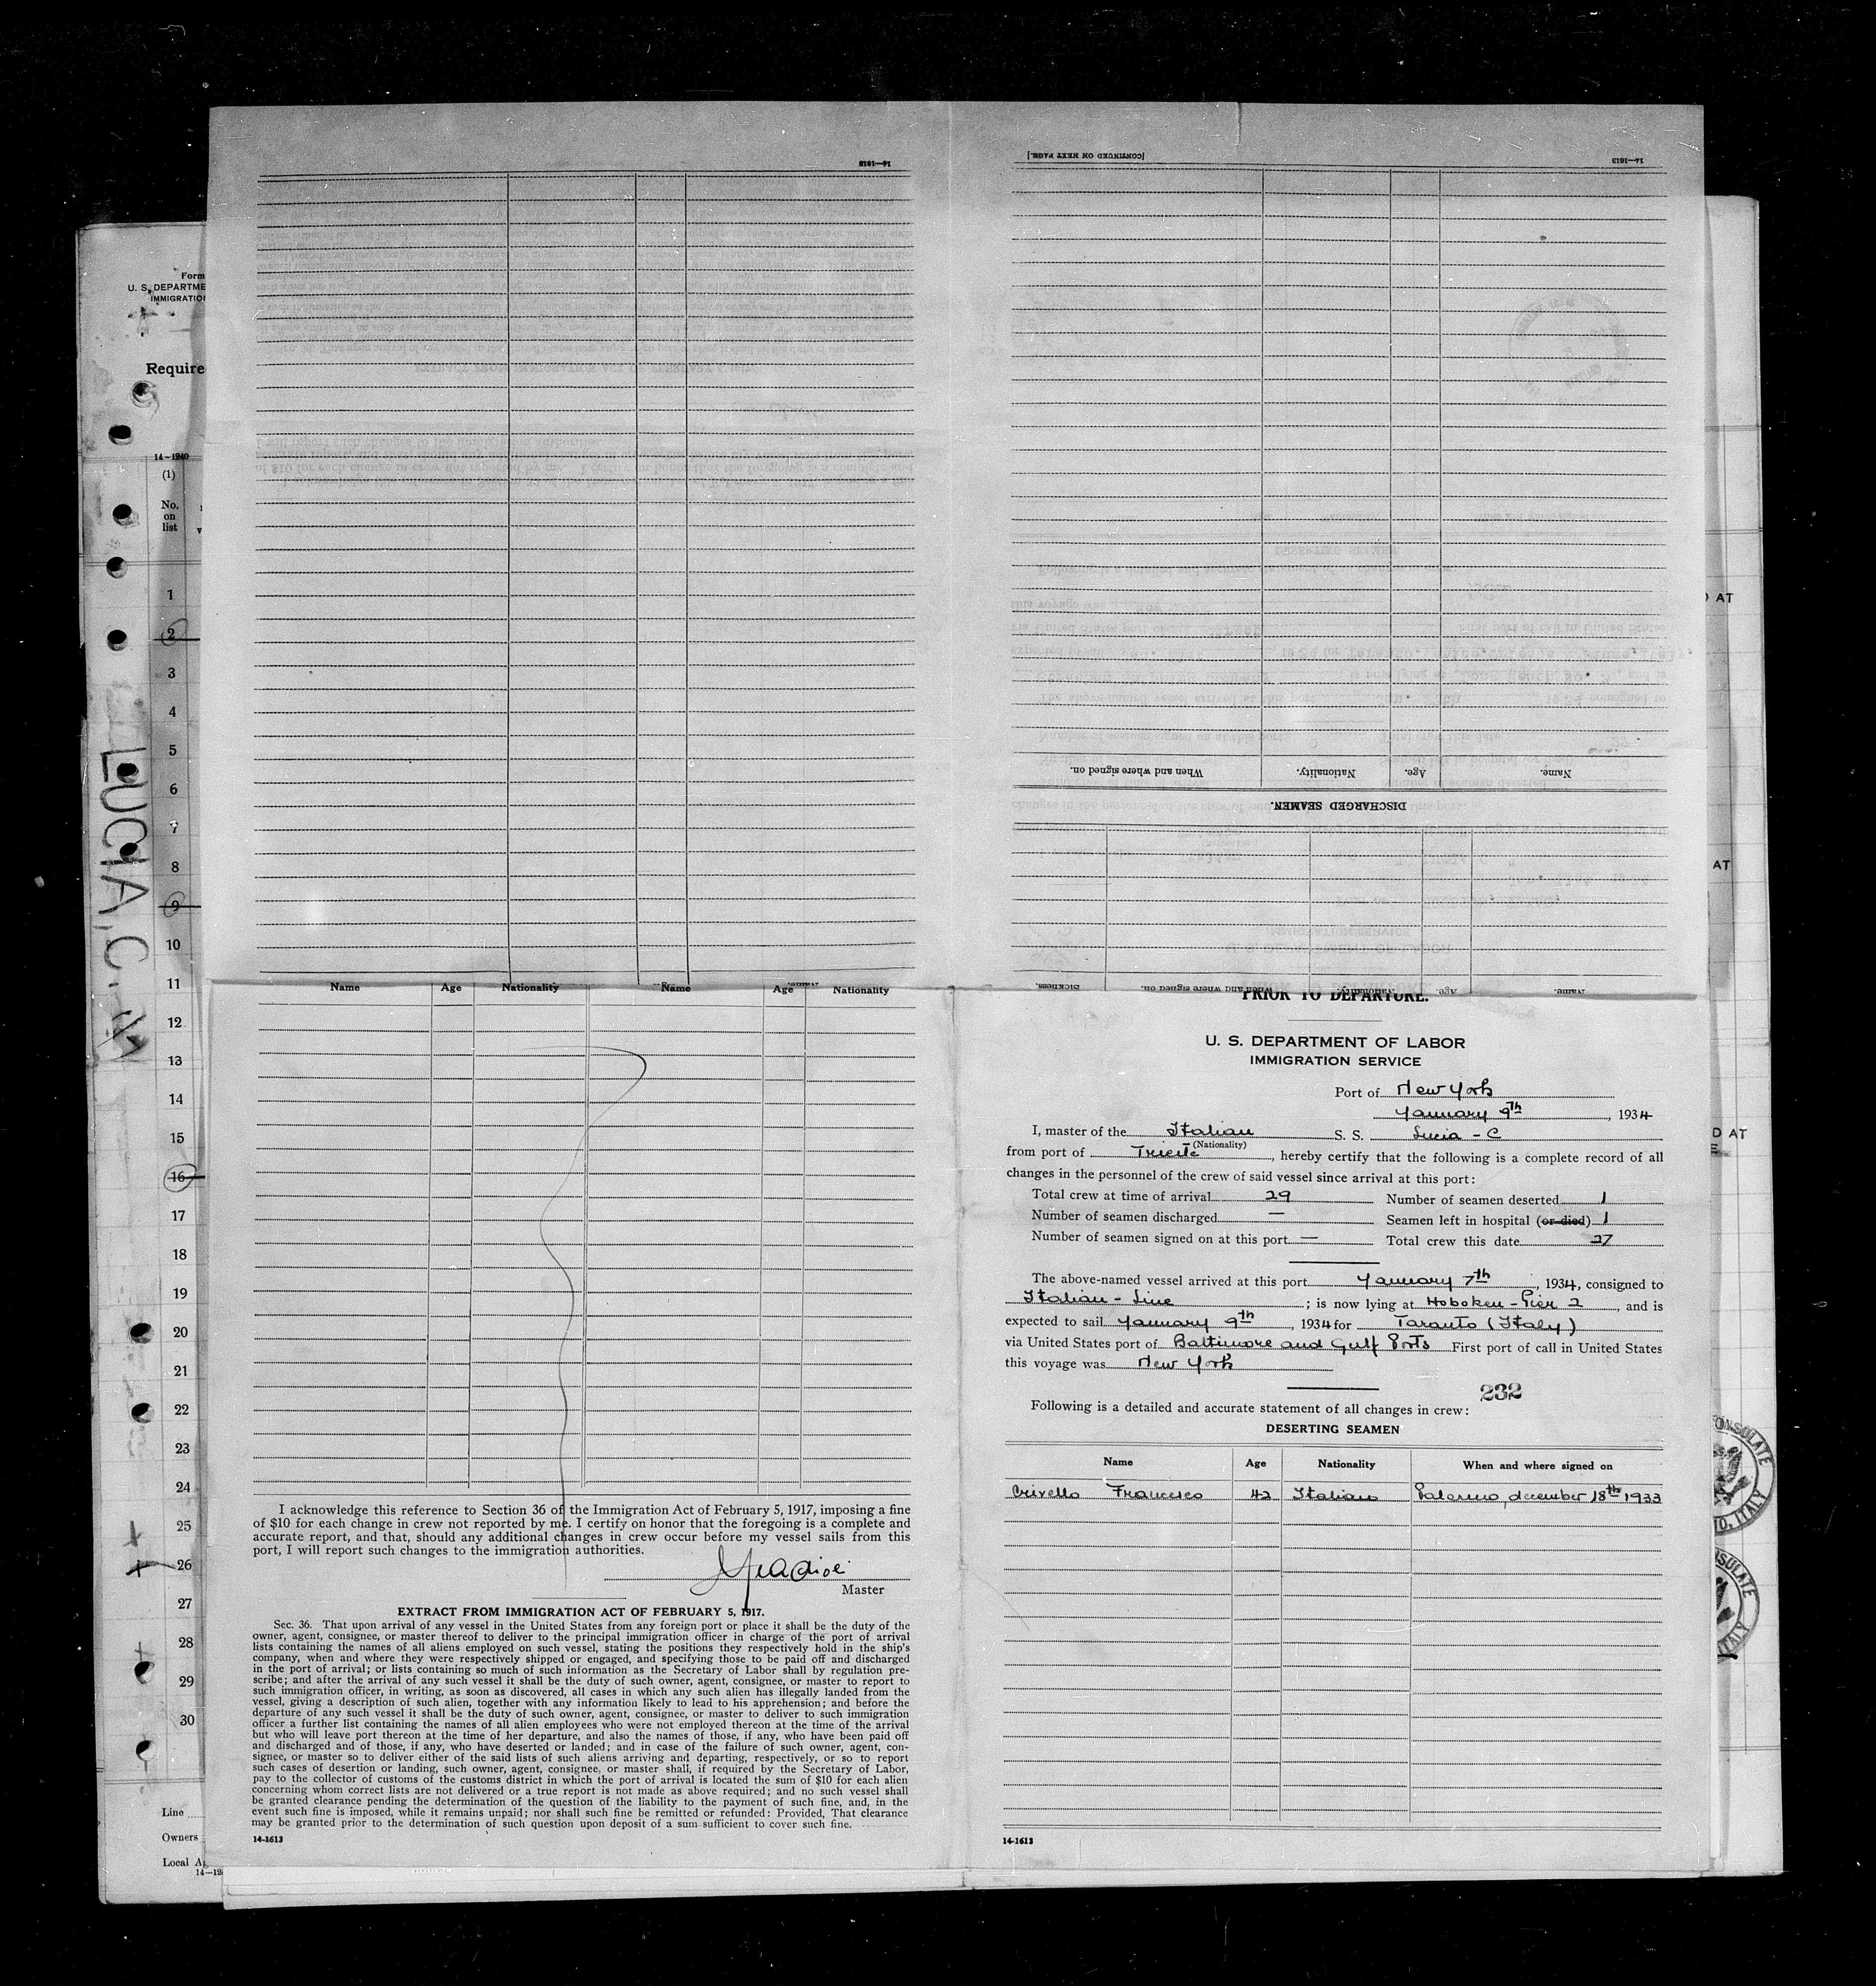 14—1613
[CONTINUED ON NEXT PAGE.]
14—1613
When and where signed on.
Nationality.
Age.
Name.
DISCHARGED SEAMEN.
Sickness.
When and where signed on.
Nationality.
Age.
Name.
Form
U. S. DEPARTME
IMMIGRATIO
Require
14—1240
(1)
No.
on
list
1
2
3
4
5
6
7
8
9
10
11
12
13
14
15
16
17
18
19
20
21
22
23
24
25
26
27
28
29
30
LUCIA, C.
Line
Owners
Local Ag
Name Age Nationality Name Age Nationality
I acknowledge this reference to Section 36 of the Immigration Act of February 5, 1917, imposing a fine
of $10 for each change in crew not reported by me. I certify on honor that the foregoing is a complete and
accurate report, and that, should any additional changes in crew occur before my vessel sails from this
port, I will report such changes to the immigration authorities.
Master
EXTRACT FROM IMMIGRATION ACT OF FEBRUARY 5, 1917.
Sec. 36. That upon arrival of any vessel in the United States from any foreign port or place it shall be the duty of the
owner, agent, consignee, or master thereof to deliver to the principal immigration officer in charge of the port of arrival
lists containing the names of all aliens employed on such vessel, stating the positions they respectively hold in the ship's
company, when and where they were respectively shipped or engaged, and specifying those to be paid off and discharged
in the port of arrival; or lists containing so much of such information as the Secretary of Labor shall by regulation pre-
scribe; and after the arrival of any such vessel it shall be the duty of such owner, agent, consignee, or master to report to
such immigration officer, in writing, as soon as discovered, all cases in which any such alien has illegally landed from the
vessel, giving a description of such alien, together with any information likely to lead to his apprehension; and before the
departure of any such vessel it shall be the duty of such owner, agent, consignee, or master to deliver to such immigration
officer a further list containing the names of all alien employees who were not employed thereon at the time of the arrival
but who will leave port thereon at the time of her departure, and also the names of those, if any, who have been paid off
and discharged and of those, if any, who have deserted or landed; and in case of the failure of such owner, agent, con-
signee, or master so to deliver either of the said lists of such aliens arriving and departing, respectively, or so to report
such cases of desertion or landing, such owner, agent, consignee, or master shall, if required by the Secretary of Labor,
pay to the collector of customs of the customs district in which the port of arrival is located the sum of $10 for each alien
concerning whom correct lists are not delivered or a true report is not made as above required; and no such vessel shall
be granted clearance pending the determination of the question of the liability to the payment of such fine, and, in the
event such fine is imposed, while it remains unpaid; nor shall such fine be remitted or refunded: Provided, That clearance
may be granted prior to the determination of such question upon deposit of a sum sufficient to cover such fine.
14-1613
PRIOR TO DEPARTURE.
U. S. DEPARTMENT OF LABOR
IMMIGRATION SERVICE
Port of New York
January 9th, 1934
I, master of the Italian S. S. Lucia - C
(Nationality)
from port of Trieste, hereby certify that the following is a complete record of all
changes in the personnel of the crew of said vessel since arrival at this port:
Total crew at time of arrival 29 Number of seamen deserted 1
Number of seamen discharged — Seamen left in hospital (or died) 1
Number of seamen signed on at this port — Total crew this date 27
The above-named vessel arrived at this port January 7th, 1934, consigned to
Italian - Line; is now lying at Hoboken - Pier 2, and is
expected to sail January 9th, 1934 for Taranto (Italy)
via United States port of Baltimore and Gulf Ports First port of call in United States
this voyage was New York
232
Following is a detailed and accurate statement of all changes in crew:
DESERTING SEAMEN
Name Age Nationality When and where signed on
Crivello Francesco 42 Italian Palermo, december 18th 1933
14-1613
AT
AT
D AT
CONSULATE
O, ITALY
NSULATE
ITALY